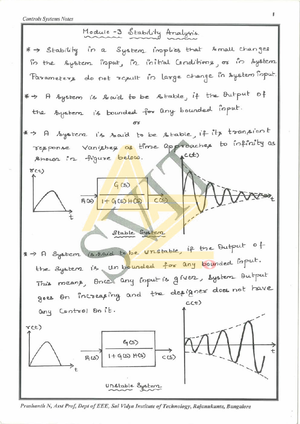 Controls Systems Notes
1
Module -3 Stability Analysis
* → Stability in a System implies that small changes
in the system input, in initial Conditions, or in system
Parameters do not result in large change in system input.
* → A System is said to be stable, if the Output of
the System is bounded for any bounded input.
or
* → A System is said to be stable, if its transient
response Vanishes as time approaches to infinity as
shown in figure below.
r(t)
c(t)
G(s)
R(s)
1+G(s)H(s)
C(s)
t
t
Stable System
SVIT
* → A System is said to be unstable, if the Output of
the System is Unbounded for any bounded input.
This means, Once any input is given, System Output
goes on increasing and the designer does not have
any Control on it.
r(t)
c(t)
G(s)
R(s)
1+G(s)H(s)
C(s)
t
t
Unstable System
Prashanth N, Asst Prof, Dept of EEE, Sai Vidya Institute of Technology, Rajanukunte, Bangalore